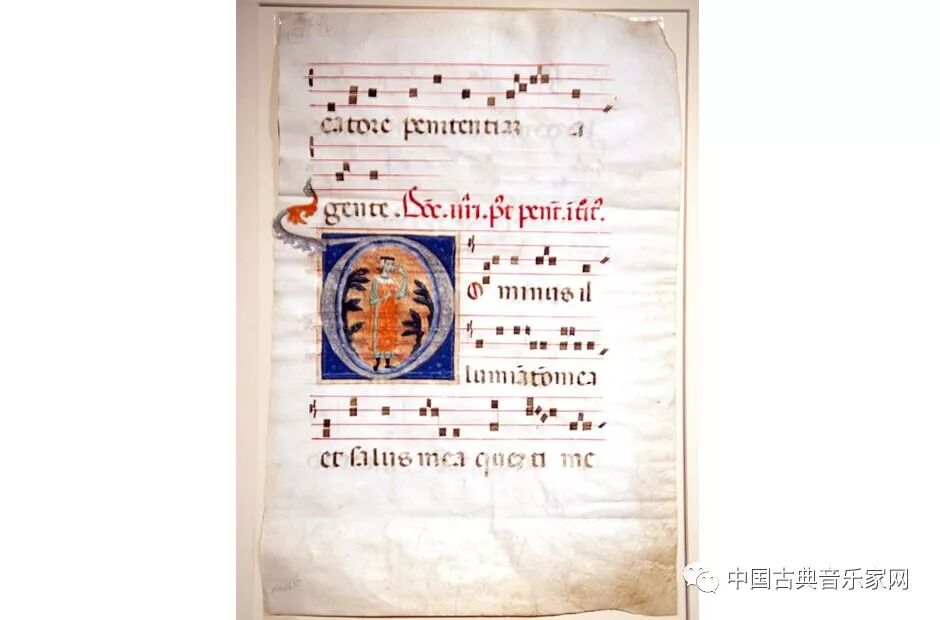 catore penitentiam a
gente. Dōc. iiii. p̄t pent̄. ītīt̄.
O minus il
lumīatō mea
et salus mea quez ti me
中国古典音乐家网